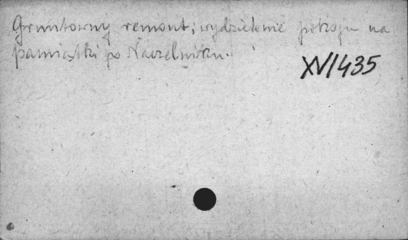 Gruntowny remont; wydzielenie pokoju na
pamiątki po Naczelniku.
XV/435